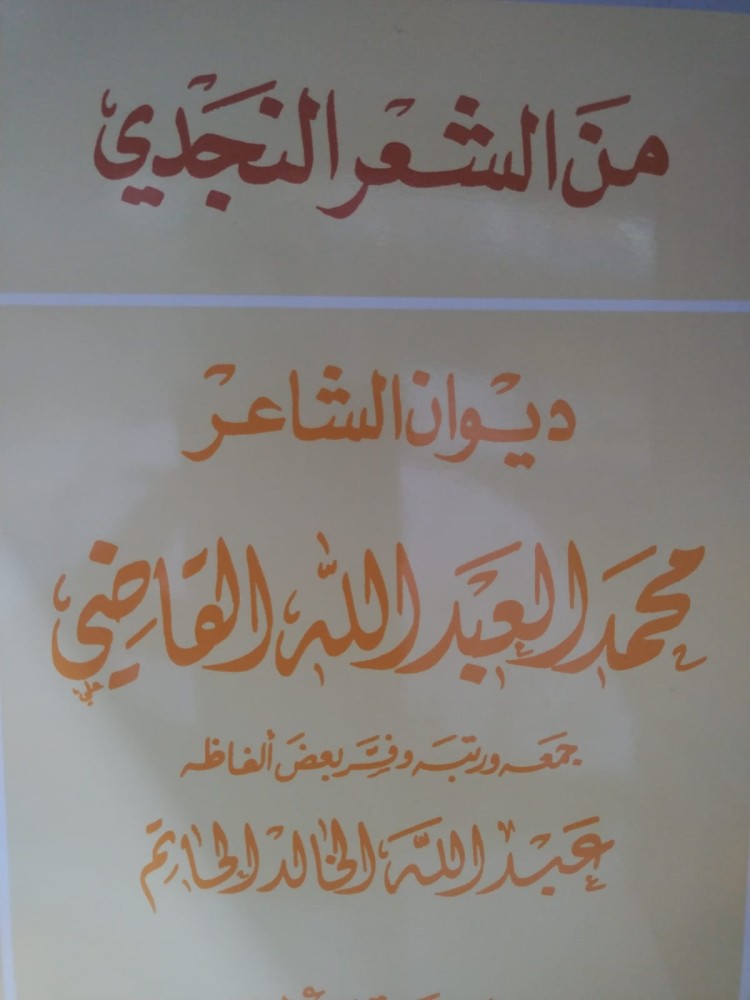 من الشعر النجدي
ديوان الشاعر
محمد العبد الله القاضي
جمعه ورتبه وفسر بعض ألفاظه
عبد الله الخالد الحاتم